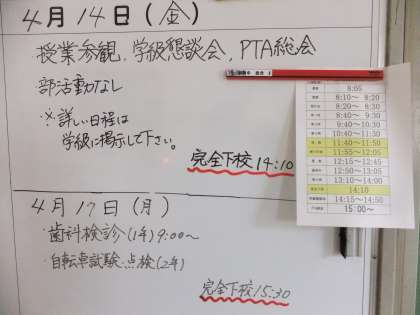 4月14日(金)
授業参観、学級懇談会、PTA総会
部活動なし
※詳しい日程は
学級に掲示して下さい。
完全下校14:10
8:05
8:10～ 8:20
8:20～ 8:30
8:40～ 9:30
9:40～10:30
10:40～11:30
11:40～11:50
11:55～12:05
12:15～12:45
12:50～13:05
13:10～14:00
14:10
14:15～14:50
15:00～
4月17日(月)
・歯科検診(1年)9:00～
・自転車試験・点検(2年)
完全下校15:30